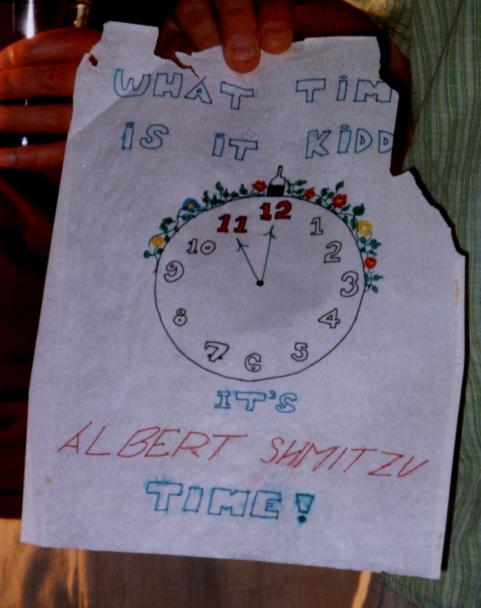 WHAT TIM
IS IT KIDD
12
11 1
10 2
9 3
8 4
7 5
6
IT'S
ALBERT SHMITZU
TIME!